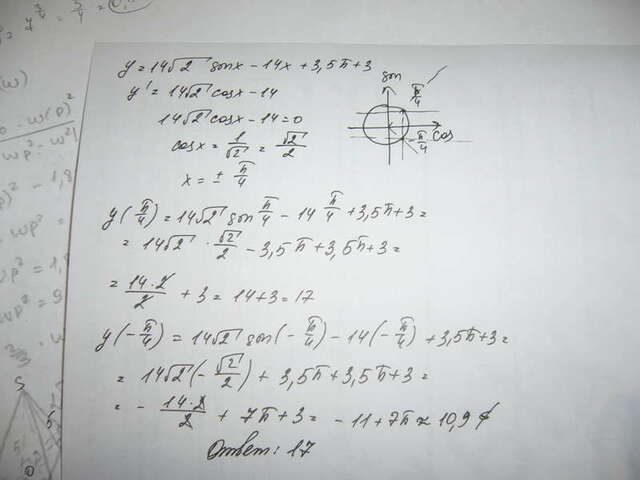 y = 14√2 sinx - 14x + 3,5π + 3
y' = 14√2 cosx - 14
14√2 cosx - 14 = 0
cosx = 1/√2 = √2/2
x = ± π/4
sin
π/4
cos
-π/4
y(π/4) = 14√2 sin π/4 - 14 π/4 + 3,5π + 3 =
= 14√2 · √2/2 - 3,5π + 3,5π + 3 =
= 14·2/2 + 3 = 14 + 3 = 17
y(-π/4) = 14√2 sin(-π/4) - 14(-π/4) + 3,5π + 3 =
= 14√2(-√2/2) + 3,5π + 3,5π + 3 =
= - 14·2/2 + 7π + 3 = -11 + 7π ≈ 10,9
Ответ: 17